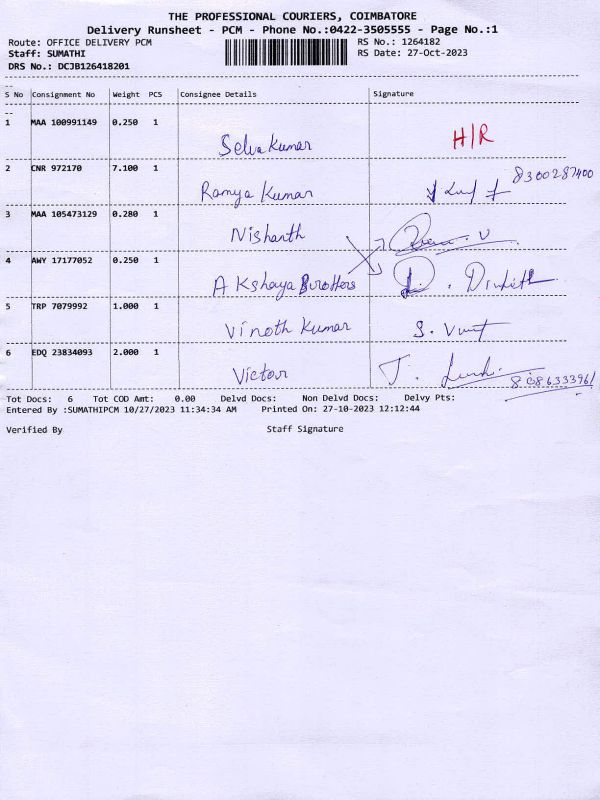 THE PROFESSIONAL COURIERS, COIMBATORE
Delivery Runsheet - PCM - Phone No.:0422-3505555 - Page No.:1
Route: OFFICE DELIVERY PCM RS No.: 1264182
Staff: SUMATHI RS Date: 27-Oct-2023
DRS No.: DCJB126418201
S No Consignment No Weight PCS Consignee Details Signature
1 MAA 100991149 0.250 1
Selva Kumar H/R
2 CNR 972170 7.100 1 8300287400
Ramya Kumar
3 MAA 105473129 0.280 1
Nishanth
4 AWY 17177052 0.250 1
Akshaya Brothers
5 TRP 7079992 1.000 1
Vinoth Kumar
6 EDQ 23834093 2.000 1
Victor
Tot Docs: 6 Tot COD Amt: 0.00 Delvd Docs: Non Delvd Docs: Delvy Pts:
Entered By :SUMATHIPCM 10/27/2023 11:34:34 AM Printed On: 27-10-2023 12:12:44
Verified By Staff Signature